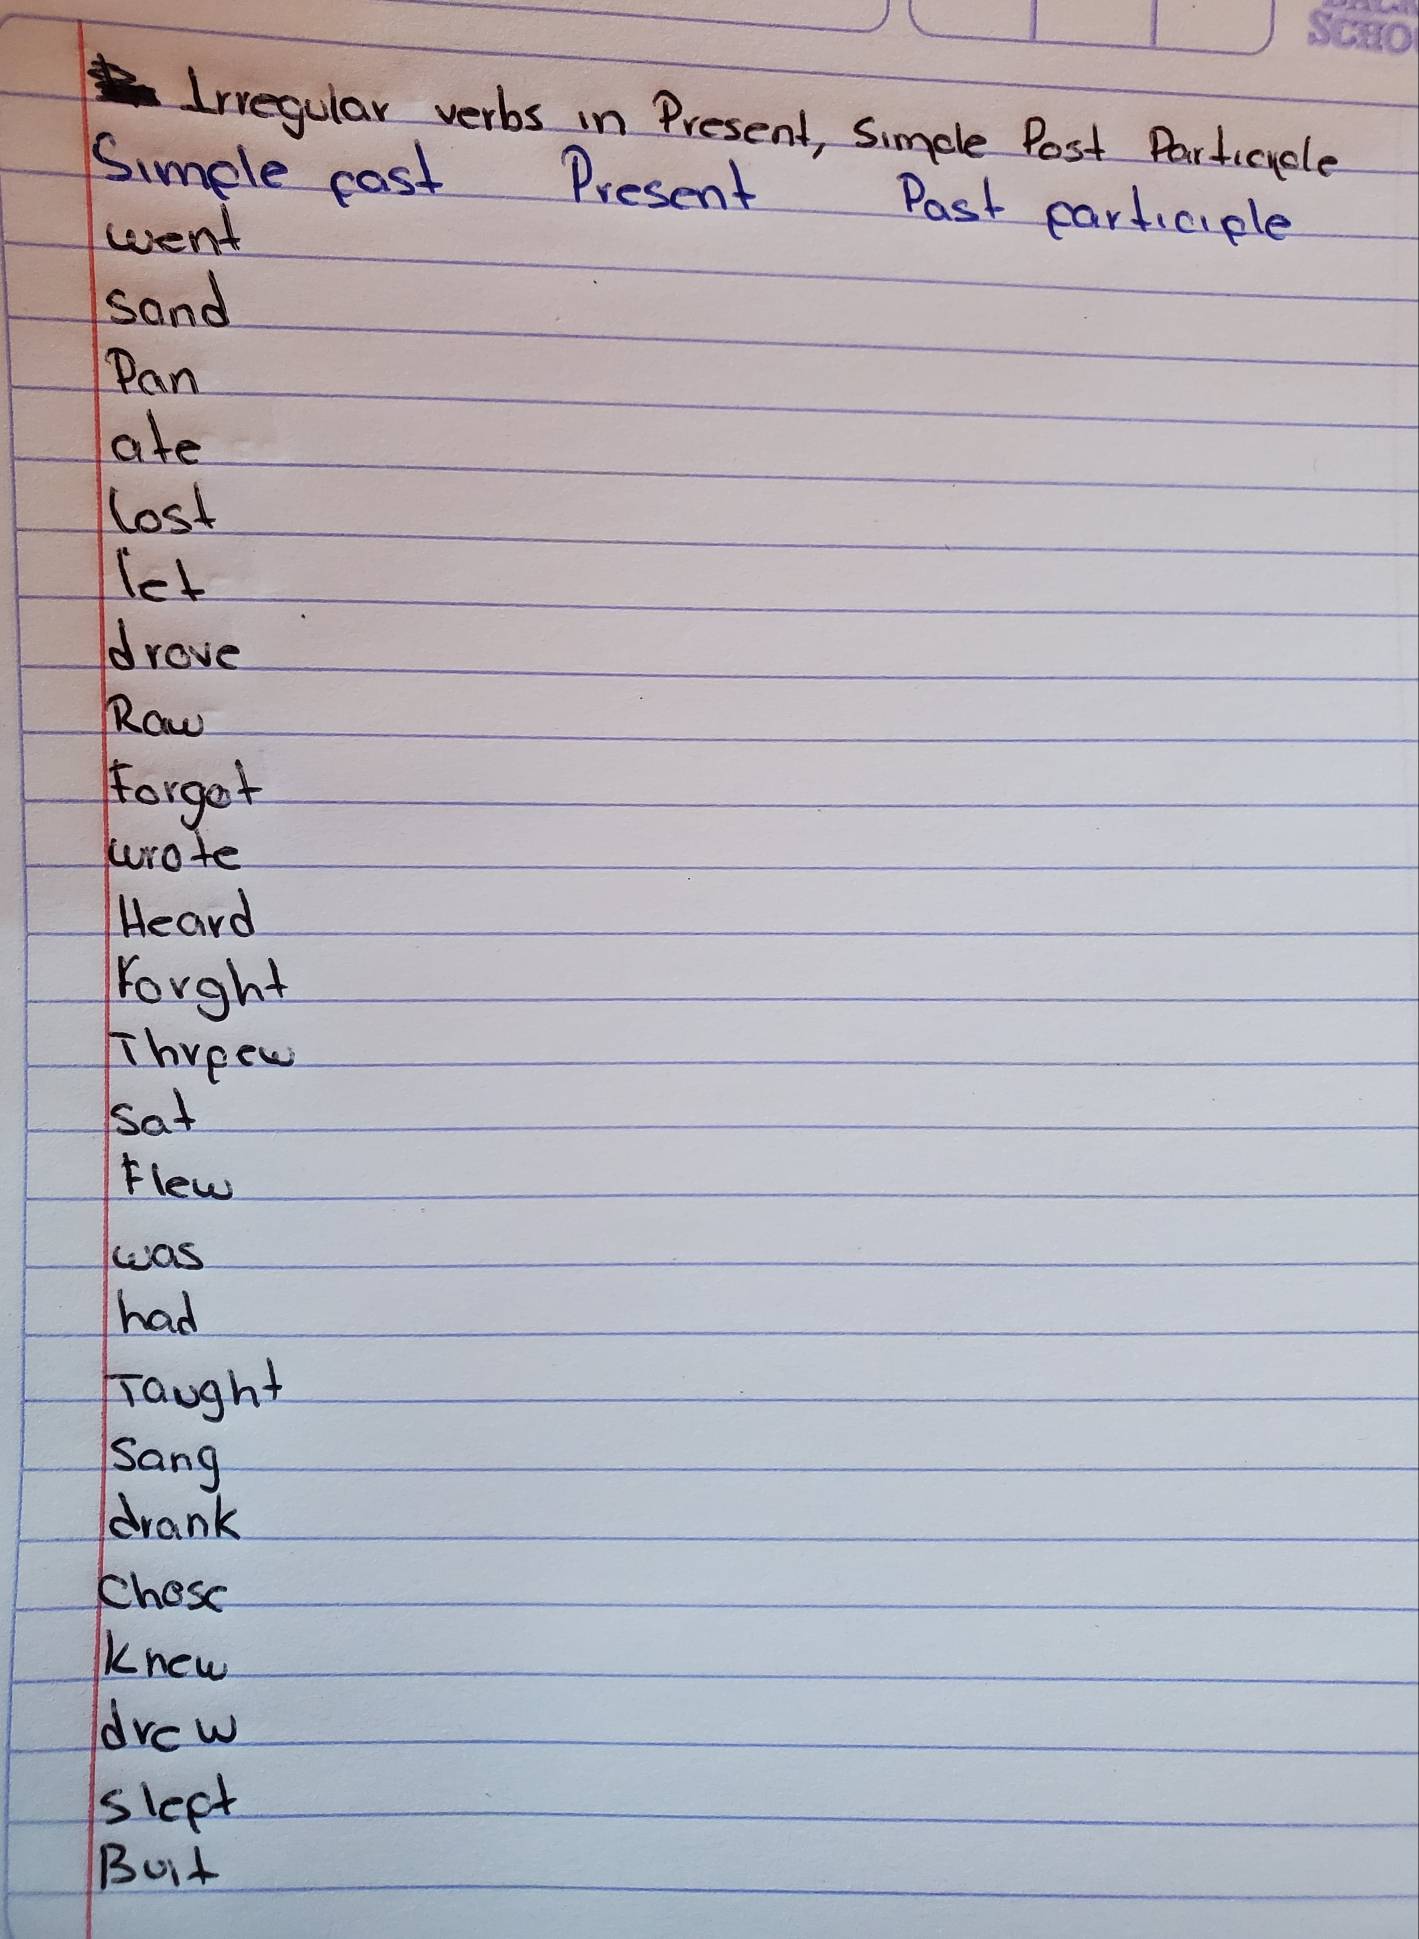 SCHO
Irregular verbs in Present, Simple Past Particiyple
Simple past Present Past participle
went
sand
Pan
ate
lost
let
drove
Raw
Forgot
wrote
Heard
Forght
Thrpew
sat
Flew
was
had
Taught
Sang
drank
Chose
Knew
drew
slept
Buit